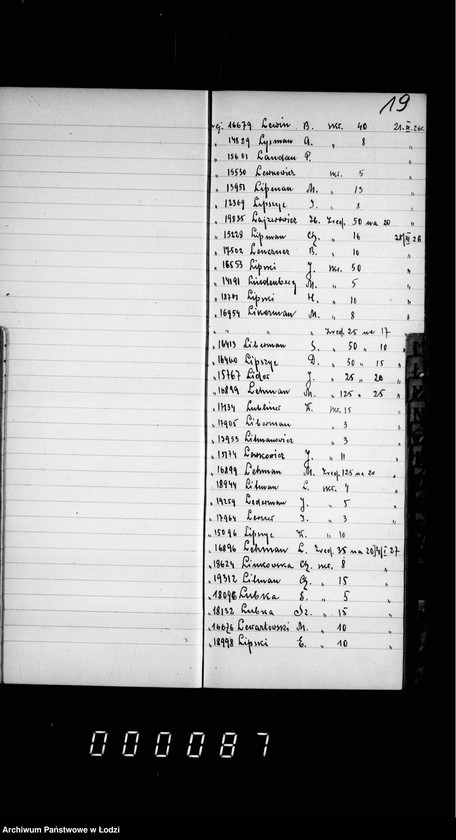 19
16679 Lewin B. nr. 40 21.XI.26r.
14829 Lyzman A. " 8 "
15601 Landau P. "
15530 Lewkowicz nr. 5 "
Lipman M. " 13 "
12369 Lipszyc J. " 8 "
19835 Lajzerowicz zred. 50 na 20 "
15228 Lipman Ch. " 16
17502 B. " 10 "
16553 Lipski J. nr. 50 "
14191 M. " 5 "
Lipski H. " 10 "
16954 M. " 8 "
" " " zred. 25 na 17
16413 Liberman S. " 50 " 10 "
16460 Lipszyc D. " 50 " 15 "
15767 Lider J. " 25 " 20 "
16899 Lehman M. " 125 " 25 "
17134 Lubliner K. nr. 15
17905 Liberman " 3 "
13953 Litmanowicz " 3 "
Lewkowicz J. " 11 "
16899 Lehman M. zred. 125 na 20 "
18944 Litman L. nr. 4 "
19259 Lederman J. " 5 "
17964 Lerner J. " 3 "
15096 Lipszyc K. " 10 "
16896 Lehman L. zred. 35 na 20 I 27
18624 Linkowska Ch. nr. 8 "
19312 Litman Ch. " 15 "
18098 Lubska E. " 5 "
18132 Lubka Sz. " 15 "
16676 Lewartowski M. " 10 "
18998 Lipski E. " 10 "
000087
Archiwum Państwowe w Łodzi